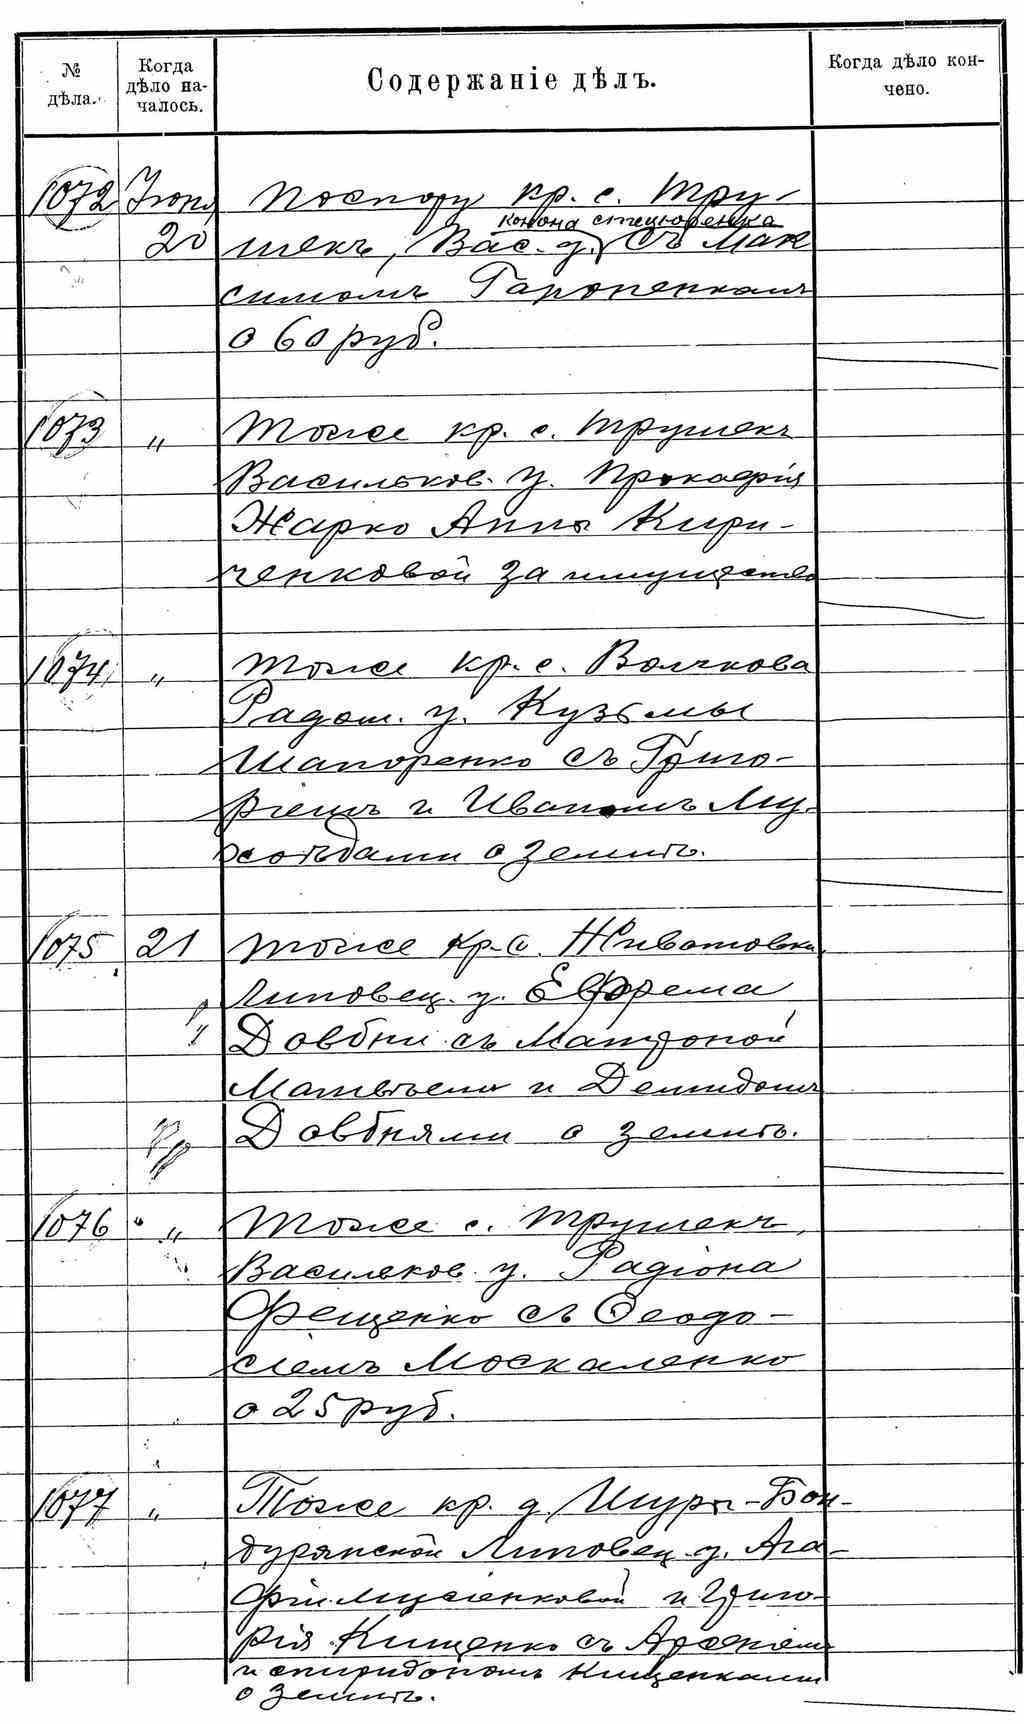 № дѣла. Когда дѣло на-чалось. Содержаніе дѣлъ. Когда дѣло кон-чено.
1072 Іюня По спору кр. с. Тру-
Конона Стецюренка
20 шекъ, Вас. у. съ Мак
симомъ Гапоненкомъ
о 60 руб.
1073 „ Тоже кр. с. Трушекъ
Васильков. у. Прокофія
Жарко Анны Кири-
ченковой за имущество
1074 „ Тоже кр. с. Волчкова
Радом. у. Кузьмы
Шапоренко съ Григо-
ріемъ и Иваномъ Му-
хоѣдами о землѣ.
1075 21 Тоже кр. с. Животовки
Липовец. у. Ефрема
Довбни съ Матроной
Матвѣемъ и Демидомъ
Довбнями о землѣ.
1076 „ Тоже с. Трушекъ,
Васильков. у. Радіона
Фещенко съ Ѳеодо-
сіемъ Москаленко
о 25 руб.
1077 „ Тоже кр. д. Шуры-Бон-
дурянской Липовец. у. Ага-
фіи Мусіенковой и Григо-
рія Кищенко съ Арсеніемъ
и Спиридономъ Кищенками
о землѣ.